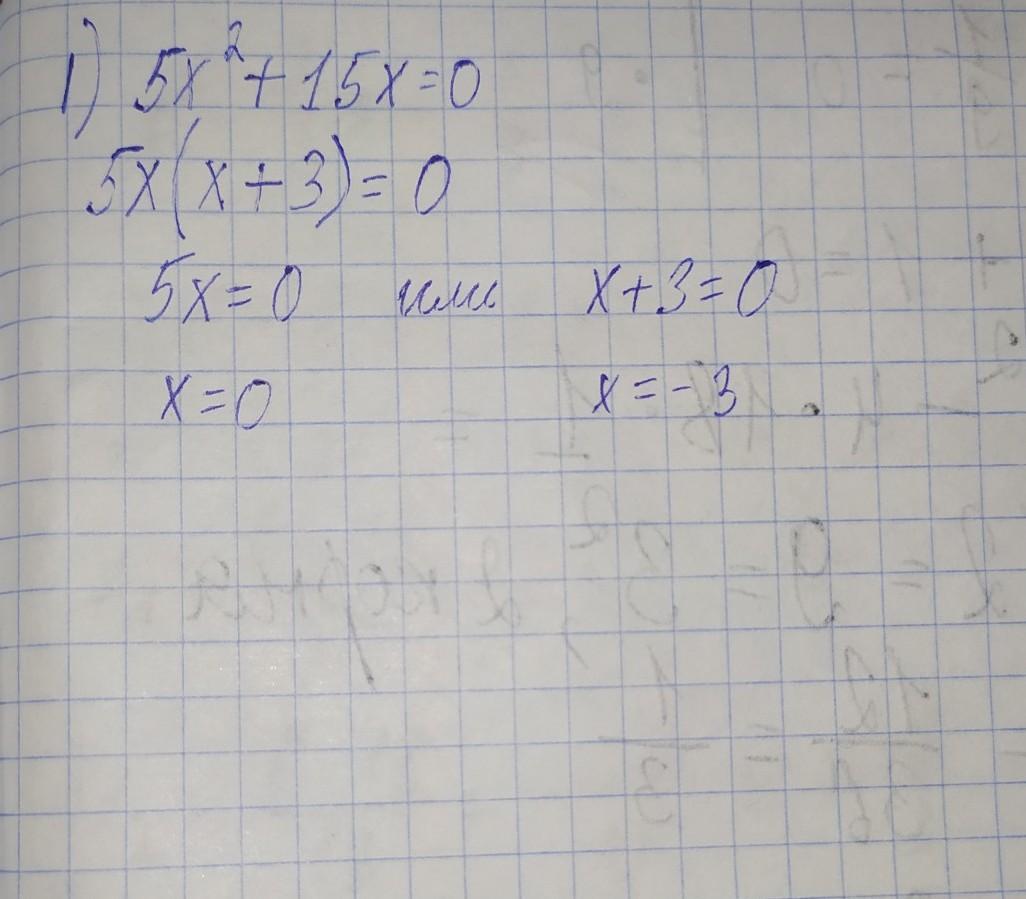 1) 5x²+15x=0
5x(x+3)=0
5x=0 или x+3=0
x=0 x=-3